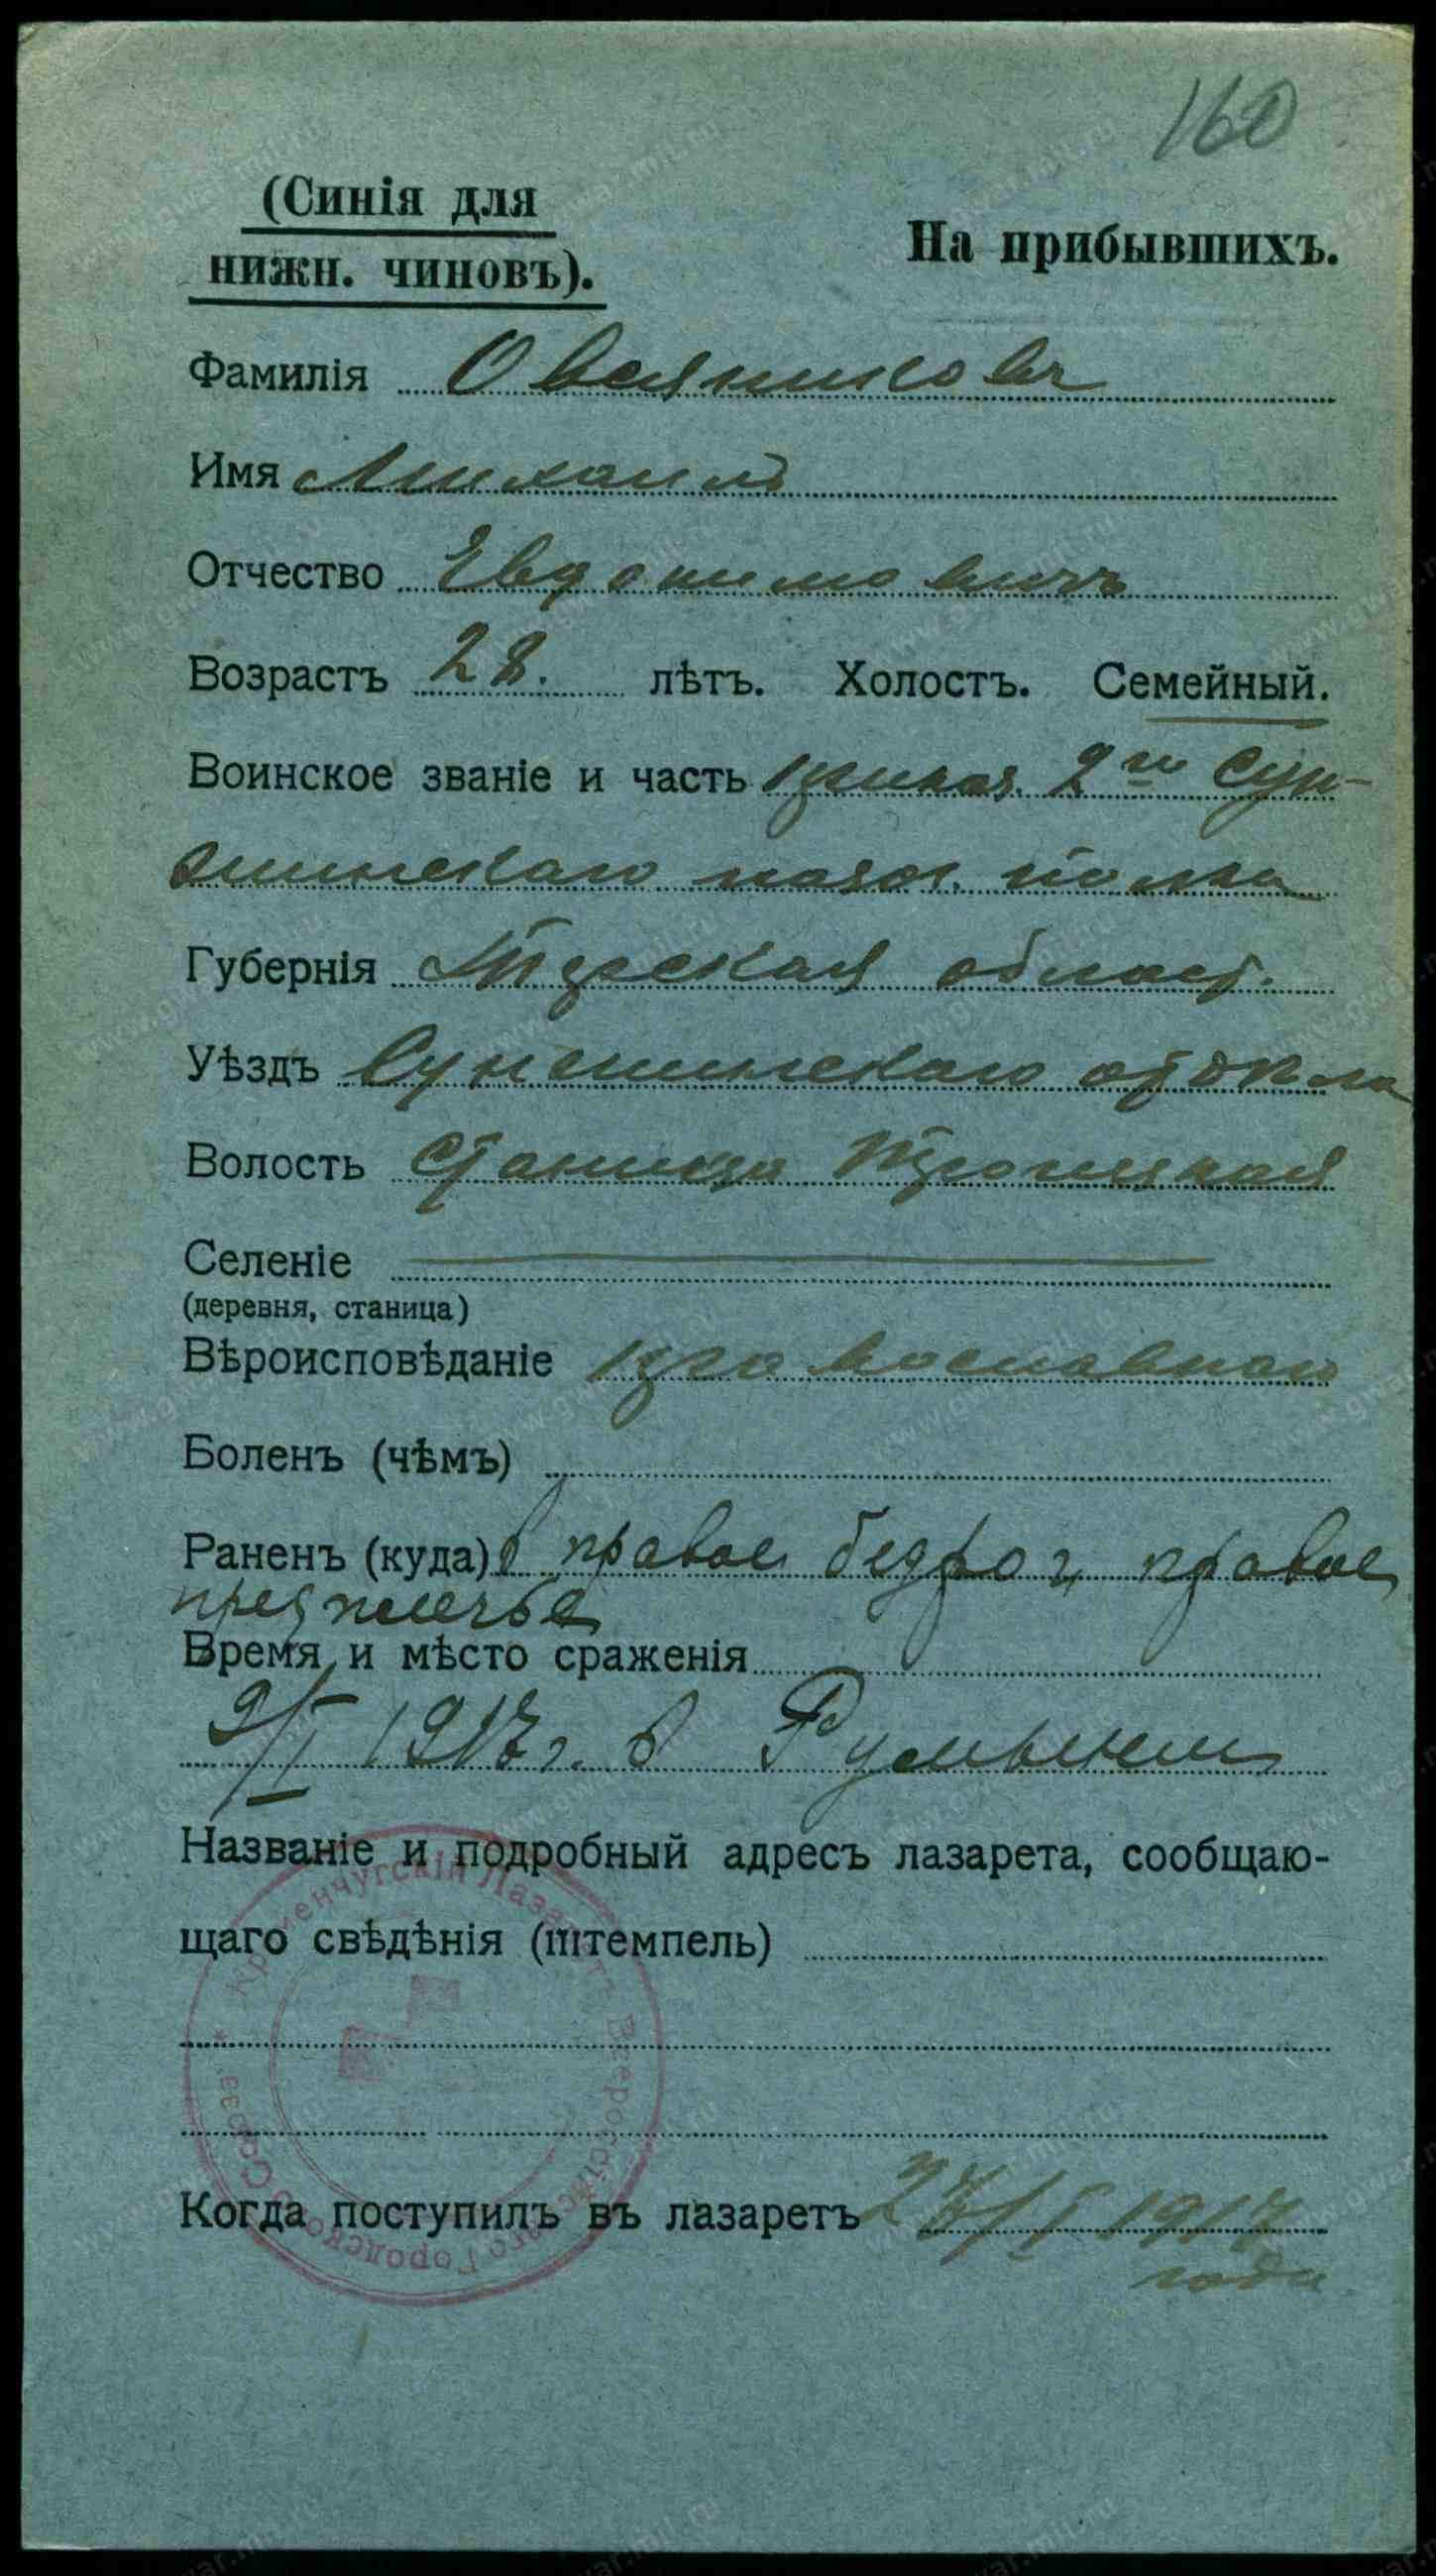 160
(Синія для
нижн. чиновъ).
На прибывшихъ.
Фамилія Овсянниковъ
Имя Михаилъ
Отчество Евдокимовичъ
Возрастъ 28. лѣтъ. Холостъ. Семейный.
Воинское званіе и часть приказ. 2го Сун-
женскаго казач. полка
Губернія Терская област.
Уѣздъ Сунженскаго отдѣла
Волость Станица Троицкая
Селеніе
(деревня, станица)
Вѣроисповѣданіе православнаго
Боленъ (чѣмъ)
Раненъ (куда) в правое бедро и правое
предплечье
Время и мѣсто сраженія
9/I 1917 г. в Румынии
Названіе и подробный адресъ лазарета, сообщаю-
щаго свѣдѣнія (штемпель)
Кременчугскій Лазаретъ Всероссійскаго Городского Союза
Когда поступилъ въ лазаретъ 27/I 1917
года